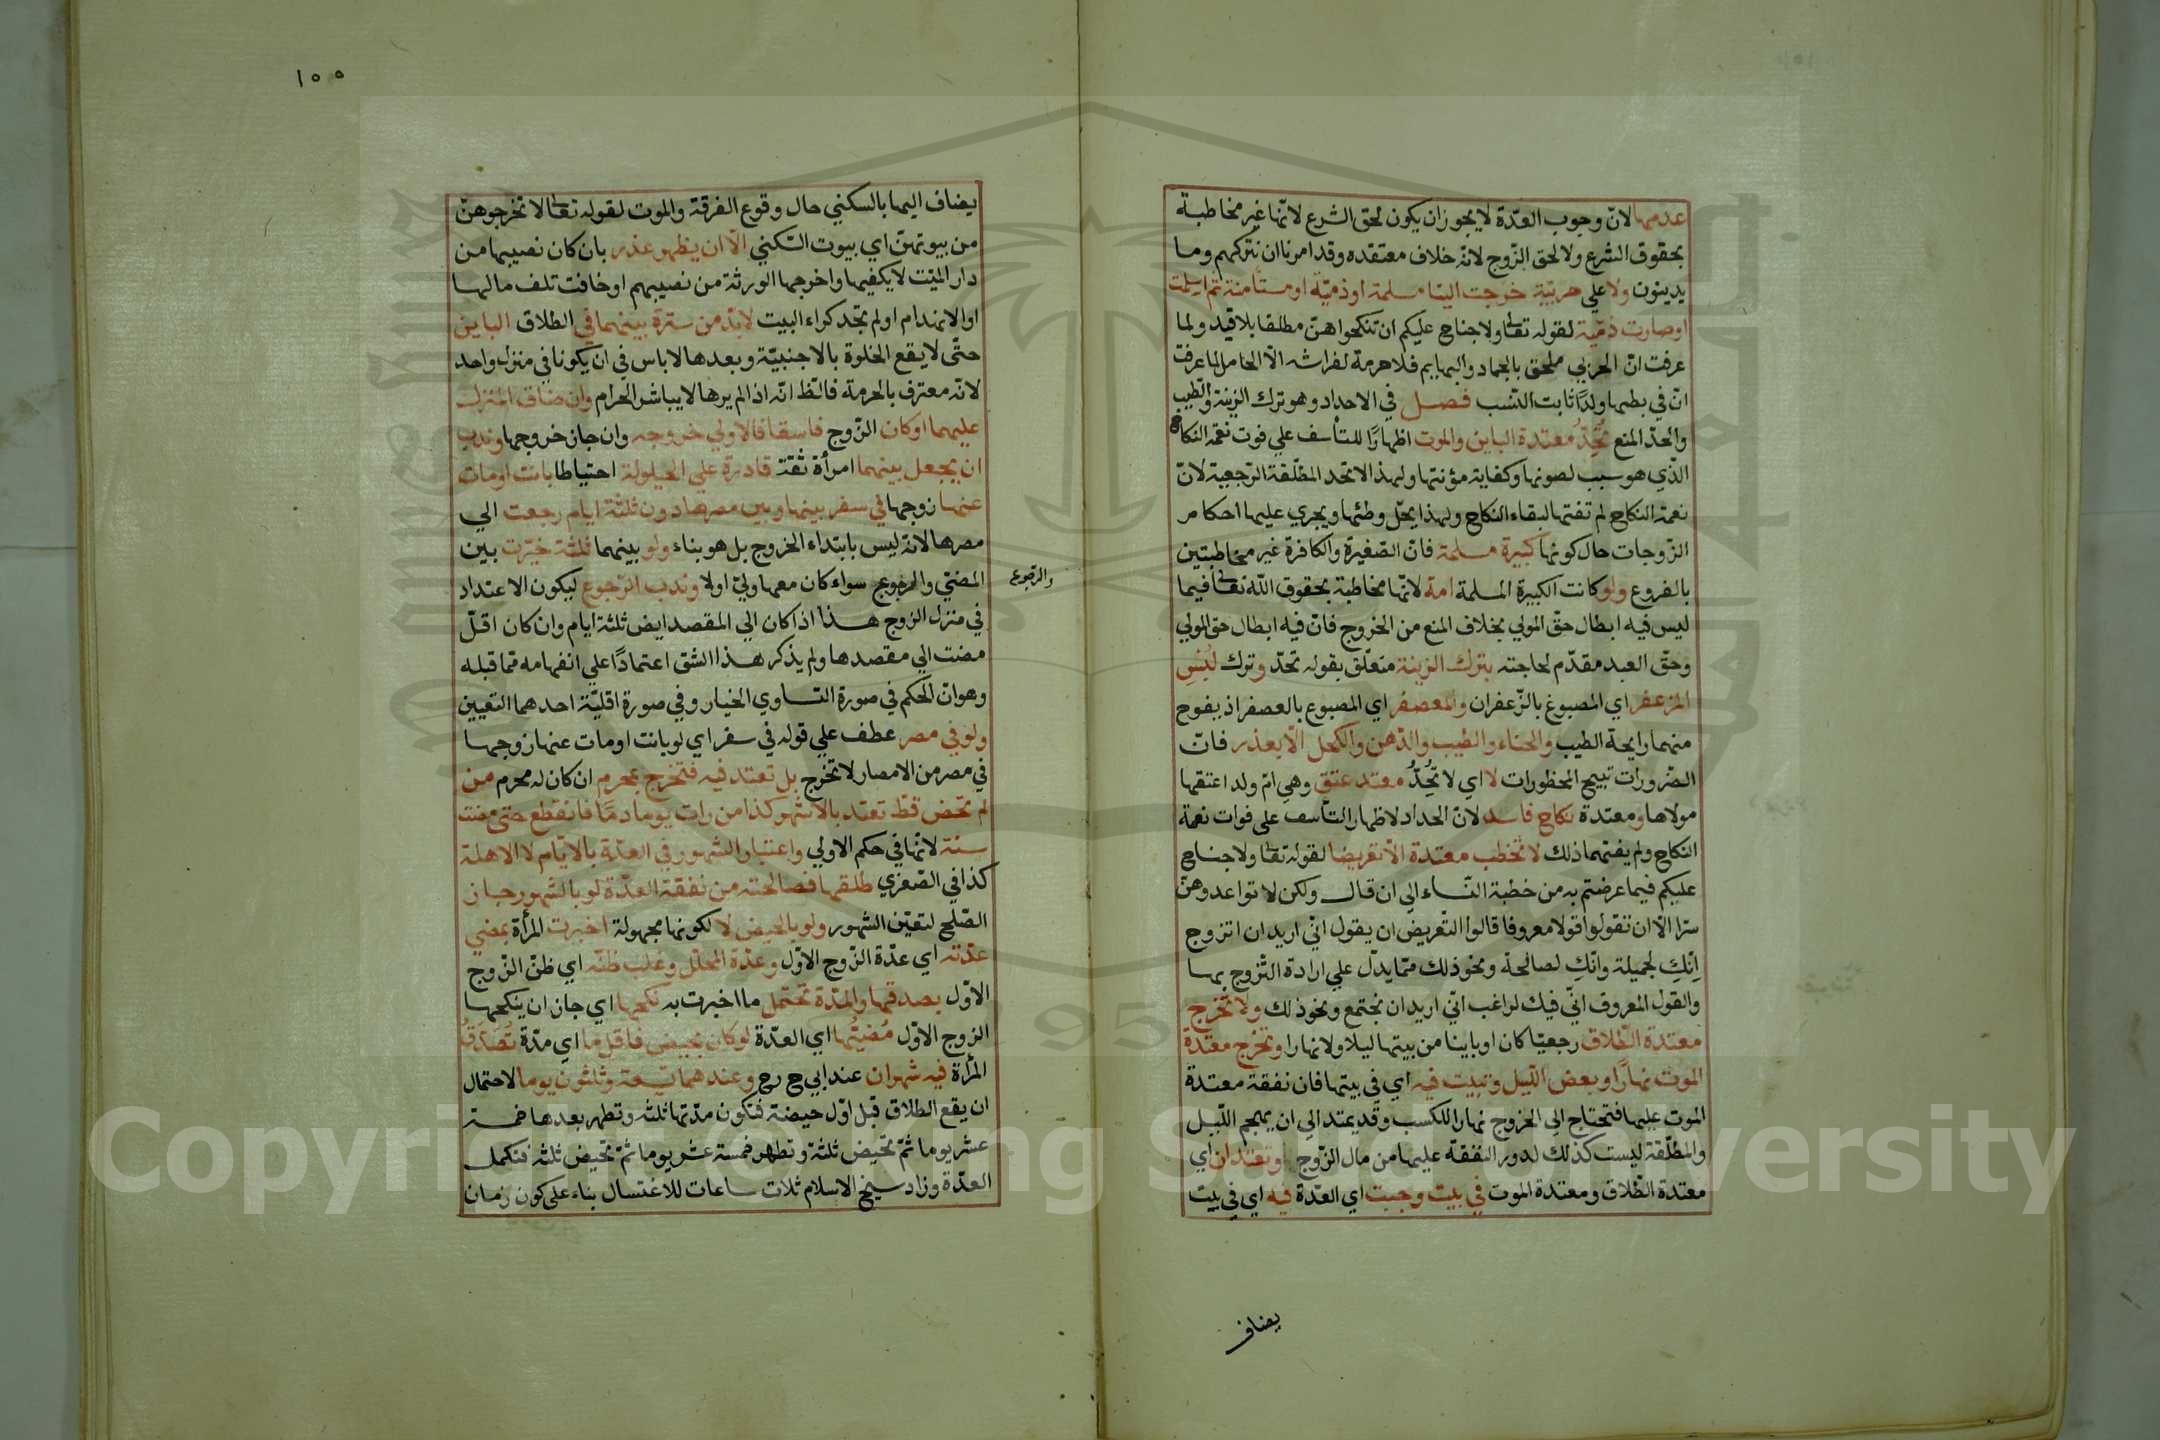 عدمها لانّ وجوب العدّة لا يجوز ان يكون لحق الشرع لانّها غير مخاطبة
بحقوق الشرع ولا لحق الزّوج لانّه خلاف معتقده وقد امرنا ان نتركهم وما
يدينون ولا علي حربيّة خرجت الينا مسلمة او ذميّة او مستأمنة ثم اسلمت
او صارت ذمّية لقوله تعالى ولا جناح عليكم ان تنكحوا هنّ مطلقا بلا قيد ولما
عرفت انّ الحربي ملحق بالجماد والبهايم فلا حرمة لفراشه الّا الحامل لما عرفت
انّ في بطنها ولدًا ثابت النّسب فصل في الاحداد وهو ترك الزينة والطيب
والحدّ المنع تُحِدُّ معتدة الباين والموت اظهارًا للتأسف علي فوت نعمة النكاح
الّذي هو سبب لصونها وكفاية مؤنتها ولهذا لا تحد المطلّقة الرّجعية لانّ
نعمة النكاح لم تفتها لبقاء النكاح ولهذا يحلّ وطئها ويجري عليها احكام
الزّوجات حال كونها كبيرة مسلمة فانّ الصّغيرة والكافرة غير مخاطبتين
بالفروع ولو كانت الكبيرة المسلمة امة لانّها مخاطبة بحقوق اللّه تعالى فيما
ليس فيه ابطال حقّ المولي بخلاف المنع من الخروج فانّ فيه ابطال حق المولي
وحقّ العبد مقدّم لحاجته بترك الزينة متعلّق بقوله تحدّ وترك لُبْسِ
المزعفر اي المصبوغ بالزّعفران والمعصفر اي المصبوغ بالعصفر اذ يفوح
منهما رايحة الطيب والحناء والطيب والدّهن والكحل الّا بعذر فانّ
الضّرورات تبيح المحظورات لا اي لا تُحِدُّ معتدة عتق وهي امّ ولد اعتقها
مولاها ومعتدة نكاح فاسد لانّ الحداد لاظهار التأسف على فوات نعمة
النكاح ولم يفتهما ذلك لا تخطب معتدة الّا تعريضا لقوله تعالى ولا جناح
عليكم فيما عرضتم به من خطبة النّساء الي ان قال ولكن لا تواعدوهنّ
سرّا الّا ان تقولوا قولا معروفا قالوا التّعريض ان يقول انّي اريد ان اتزوج
اِنّكِ لجميلة وانّكِ لصالحة ونحو ذلك ممّا يدلّ علي ارادة التّزوج بها
والقول المعروف انّي فيك لراغب انّي اريد ان نجتمع ونحو ذلك ولا تخرج
معتدة الطّلاق رجعيّا كان او باينا من بيتها ليلا ولا نهارا وتخرج معتدة
الموت نهارًا وبعض اللّيل وتبيت فيه اي في بيتها فان نفقة معتدة
الموت عليها فتحتاج الى الخروج نهارا للكسب وقد يمتد الي ان يهجم اللّيل
والمطلّقة ليست كذلك لدور النفقة عليها من مال الزّوج وتعتدان اي
معتدة الطّلاق ومعتدة الموت في بيت وجبت اي العدّة فيه اي في بيت
يضاف
١٥٥
يضاف اليها بالسكني حال وقوع الفرقة والموت لقوله تعالى لا تخرجوهنّ
من بيوتهنّ اي بيوت السّكني الّا ان يظهر عذر بان كان نصيبها من
دار الميّت لا يكفيها واخرجها الورثة من نصيبهم او خافت تلف مالها
او الانهدام او لم تجد كراء البيت لا بدّ من سترة بينهما في الطلاق الباين
حتّى لا يقع الخلوة بالاجنبيّة وبعدها لا باس في ان يكونا في منزل واحد
لانّه معترف بالحرمة فالظ انّه اذا لم يرها لا يباشر الحرام وان ضاق المنزل
عليهما او كان الزّوج فاسقا فالاولي خروجه وان جاز خروجها وندب
ان يجعل بينهما امرأة ثقة قادرة علي الحيلولة احتياطا بانت او مات
عنها زوجها في سفر بينها وبين مصرها دون ثلثة ايام رجعت الي
مصرها لانّه ليس بابتداء الخروج بل هو بناء ولو بينهما ثلثة خيّرت بين
المضيّ والرجوع سواء كان معها وليّ اولا وندب الرّجوع ليكون الاعتداد
والرّجوع
في منزل الزوج هذا اذا كان الي المقصد ايض ثلثة ايام وان كان اقلّ
مضت الي مقصدها ولم يذكر هذا الشق اعتمادًا علي انفهامه ممّا قبله
وهو انّ الحكم في صورة التساوي الخيار وفي صورة اقليّة احدهما التعيين
ولو في مصر عطف علي قوله في سفر اي لو بانت او مات عنها زوجها
في مصر من الامصار لا تخرج بل تعتد فيه فتخرج بمحرم ان كان له محرم من
لم تحض قطّ تعتد بالاشهر كذا من رات يوما دمًا فانقطع حتى مضت
سنة لانّها في حكم الاولي واعتبار الشهور في العدّة بالايّام لا الاهلة
كذا في الصّغري طلقها فصالحته من نفقة العدّة لو بالشهور جاز
الصّلح لتعيّن الشهور ولو بالحيض لا لكونها مجهولة اخبرت المرأة بمضي
عدّته اي عدّة الزّوج الاوّل وعدّة المحلّل وغلب ظنّه اي ظنّ الزّوج
الاوّل بصدقها والمدّة تحتمل ما اخبرت به نكحها اي جاز ان ينكحها
الزوج الاوّل مُضِيُّها اي العدّة لو كان بحيض فاقل ما اي مدّة تُصَدّقُ
المرأة فيه شهران عند ابي ح رح وعندهما تسعة وثلثون يوما لاحتمال
ان يقع الطلاق قبل اوّل حيضة فتكون مدّتها ثلثه وتطهر بعدها خمسة
عشر يوما ثمّ تحيض ثلثة وتطهر خمسة عشر يوما ثمّ تحيض ثلثة فتكمل
العدّة وزاد شيخ الاسلام ثلاث ساعات للاغتسال بناء على كون زمان
Copyright © King Saud University